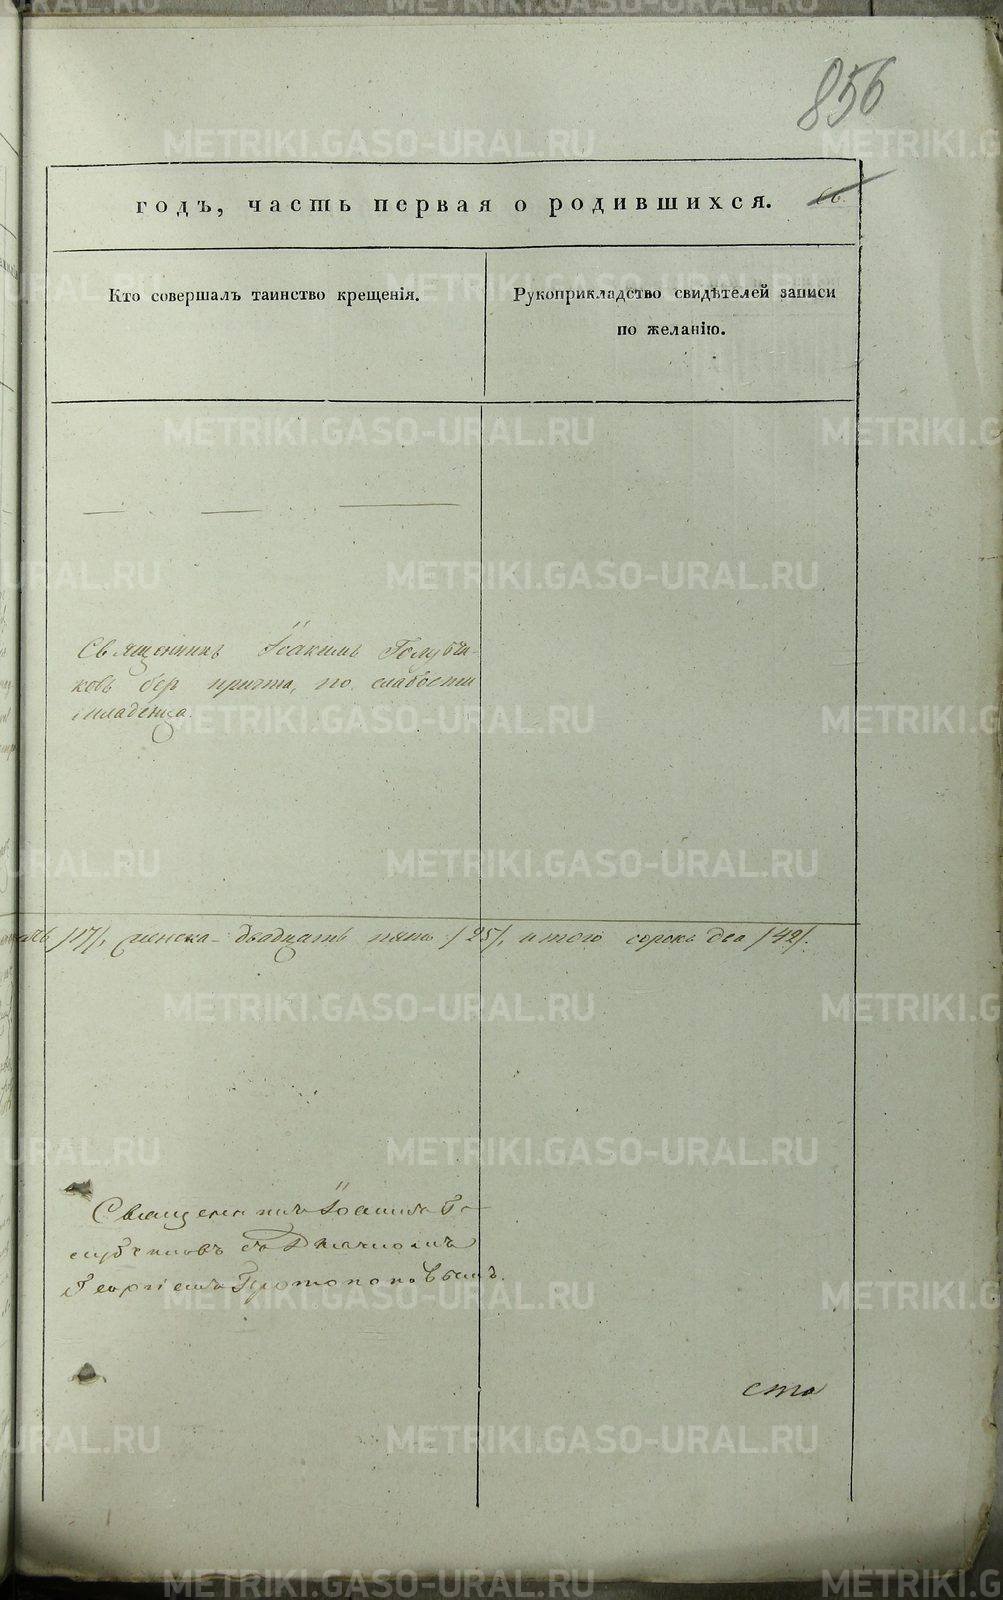 856
годъ, часть первая о родившихся.
Кто совершалъ таинство крещенія.
Рукоприкладство свидѣтелей записи
по желанію.
Священникъ Іоакимъ Голубчи-
ковъ безъ причта, по слабости
младенца.
/17/, женска двадцать пять /25/, итого сорокъ два /42/.
Священникъ Го-
лубчиковъ съ Діакономъ
Георгіемъ Протопоповымъ.
сто
METRIKI.GASO-URAL.RU